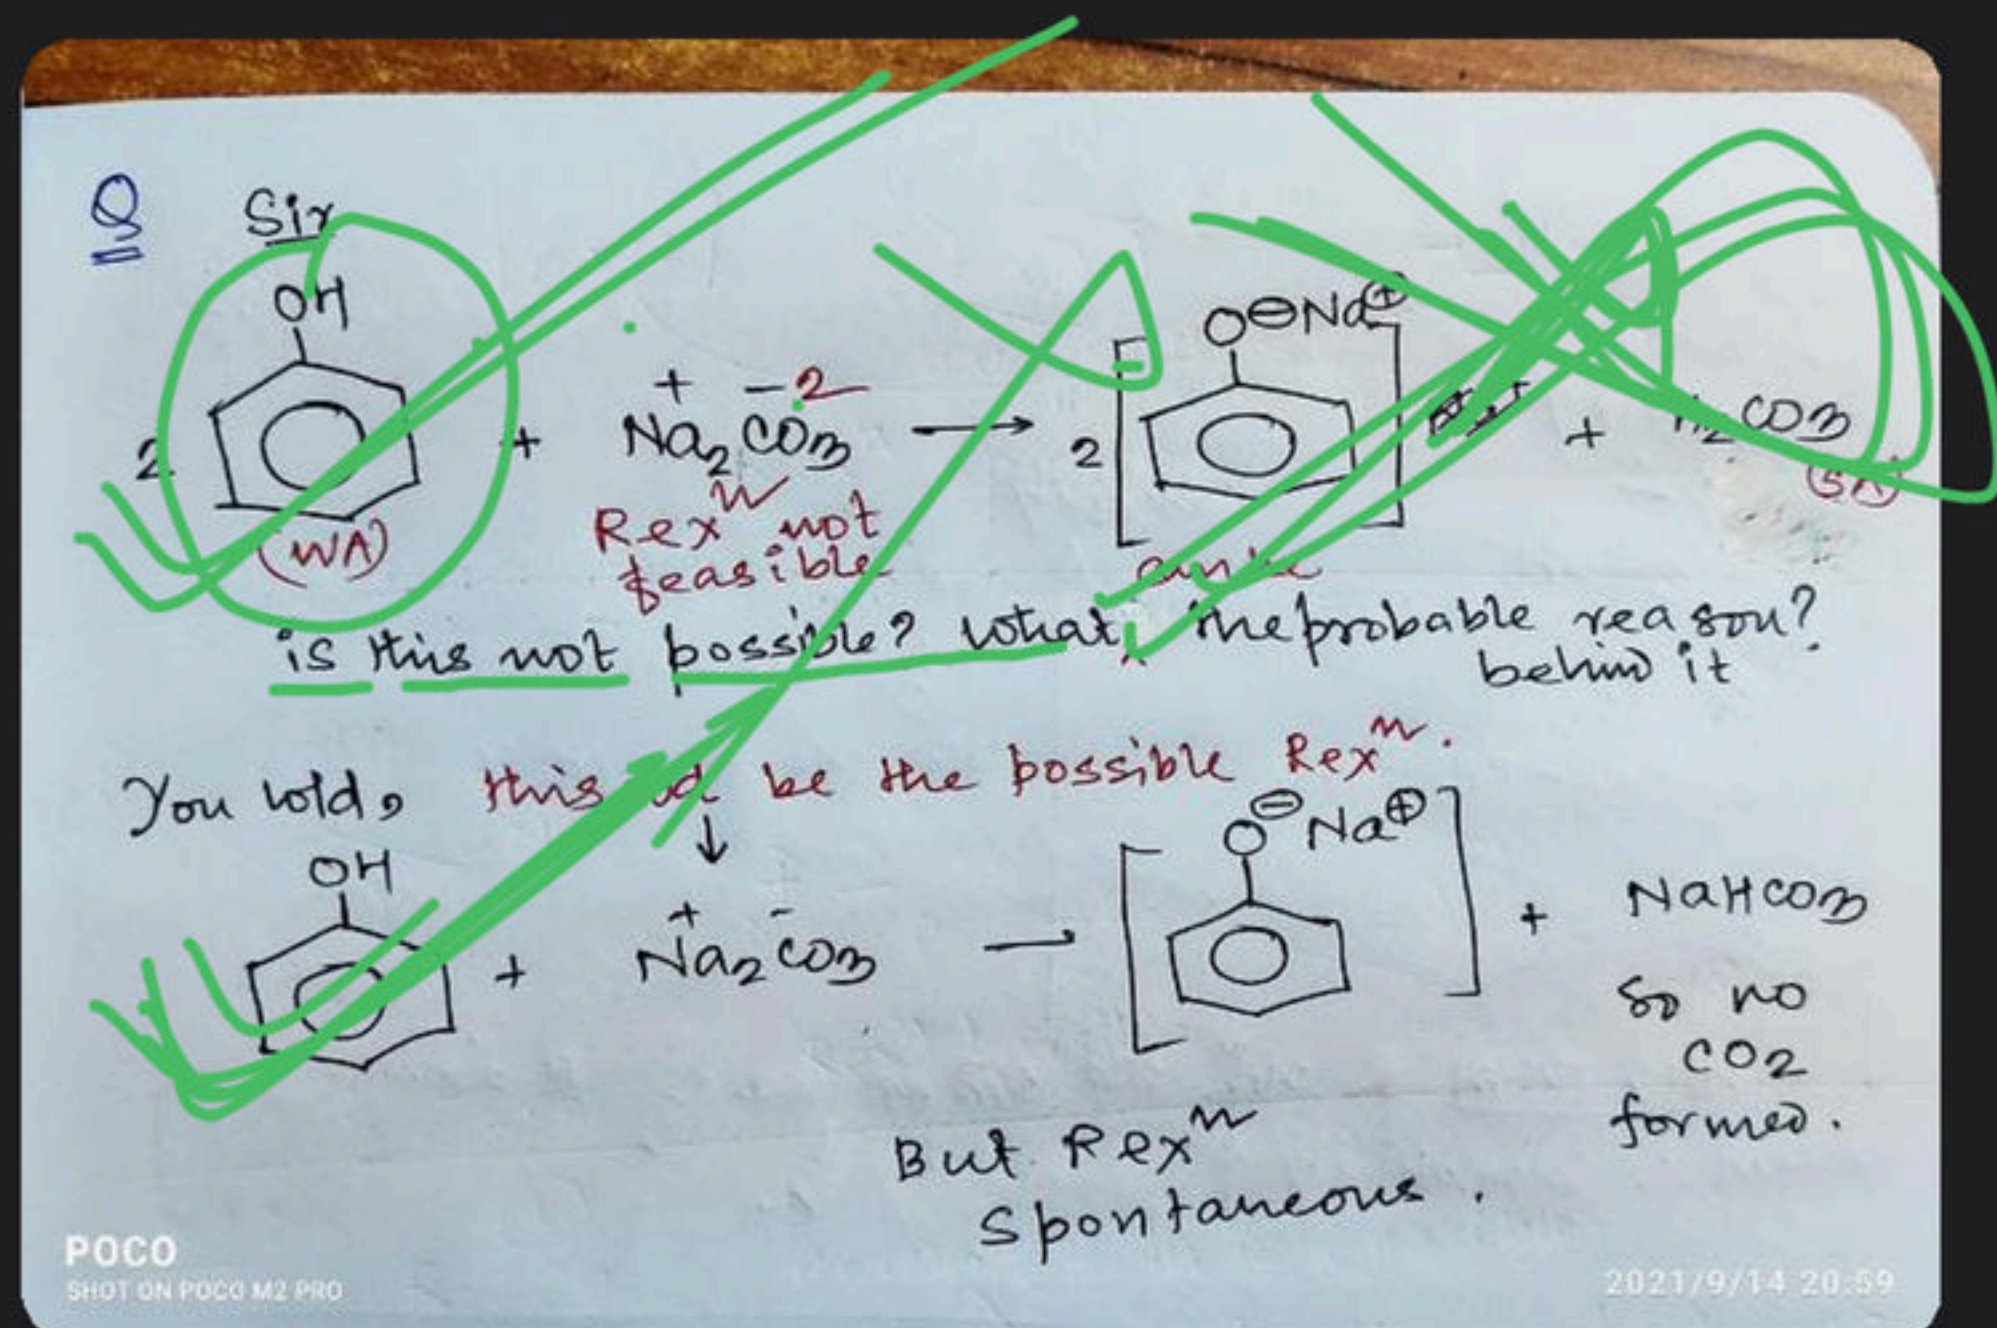 Q Sir
OH
O⊖Na⊕
2 + Na₂⁺CO₃⁻² → 2 [ ] + H₂CO₃
(WA) (SA)
Rexⁿ not
feasible
is this not possible? What, the probable reason?
behind it
You told, this be the possible Rexⁿ.
↓
OH
O⊖Na⊕
+ Na₂⁺CO₃⁻ → [ ] + NaHCO₃
So no
CO₂
formed.
But Rexⁿ
Spontaneous.
POCO
SHOT ON POCO M2 PRO
2021/9/14 20:59